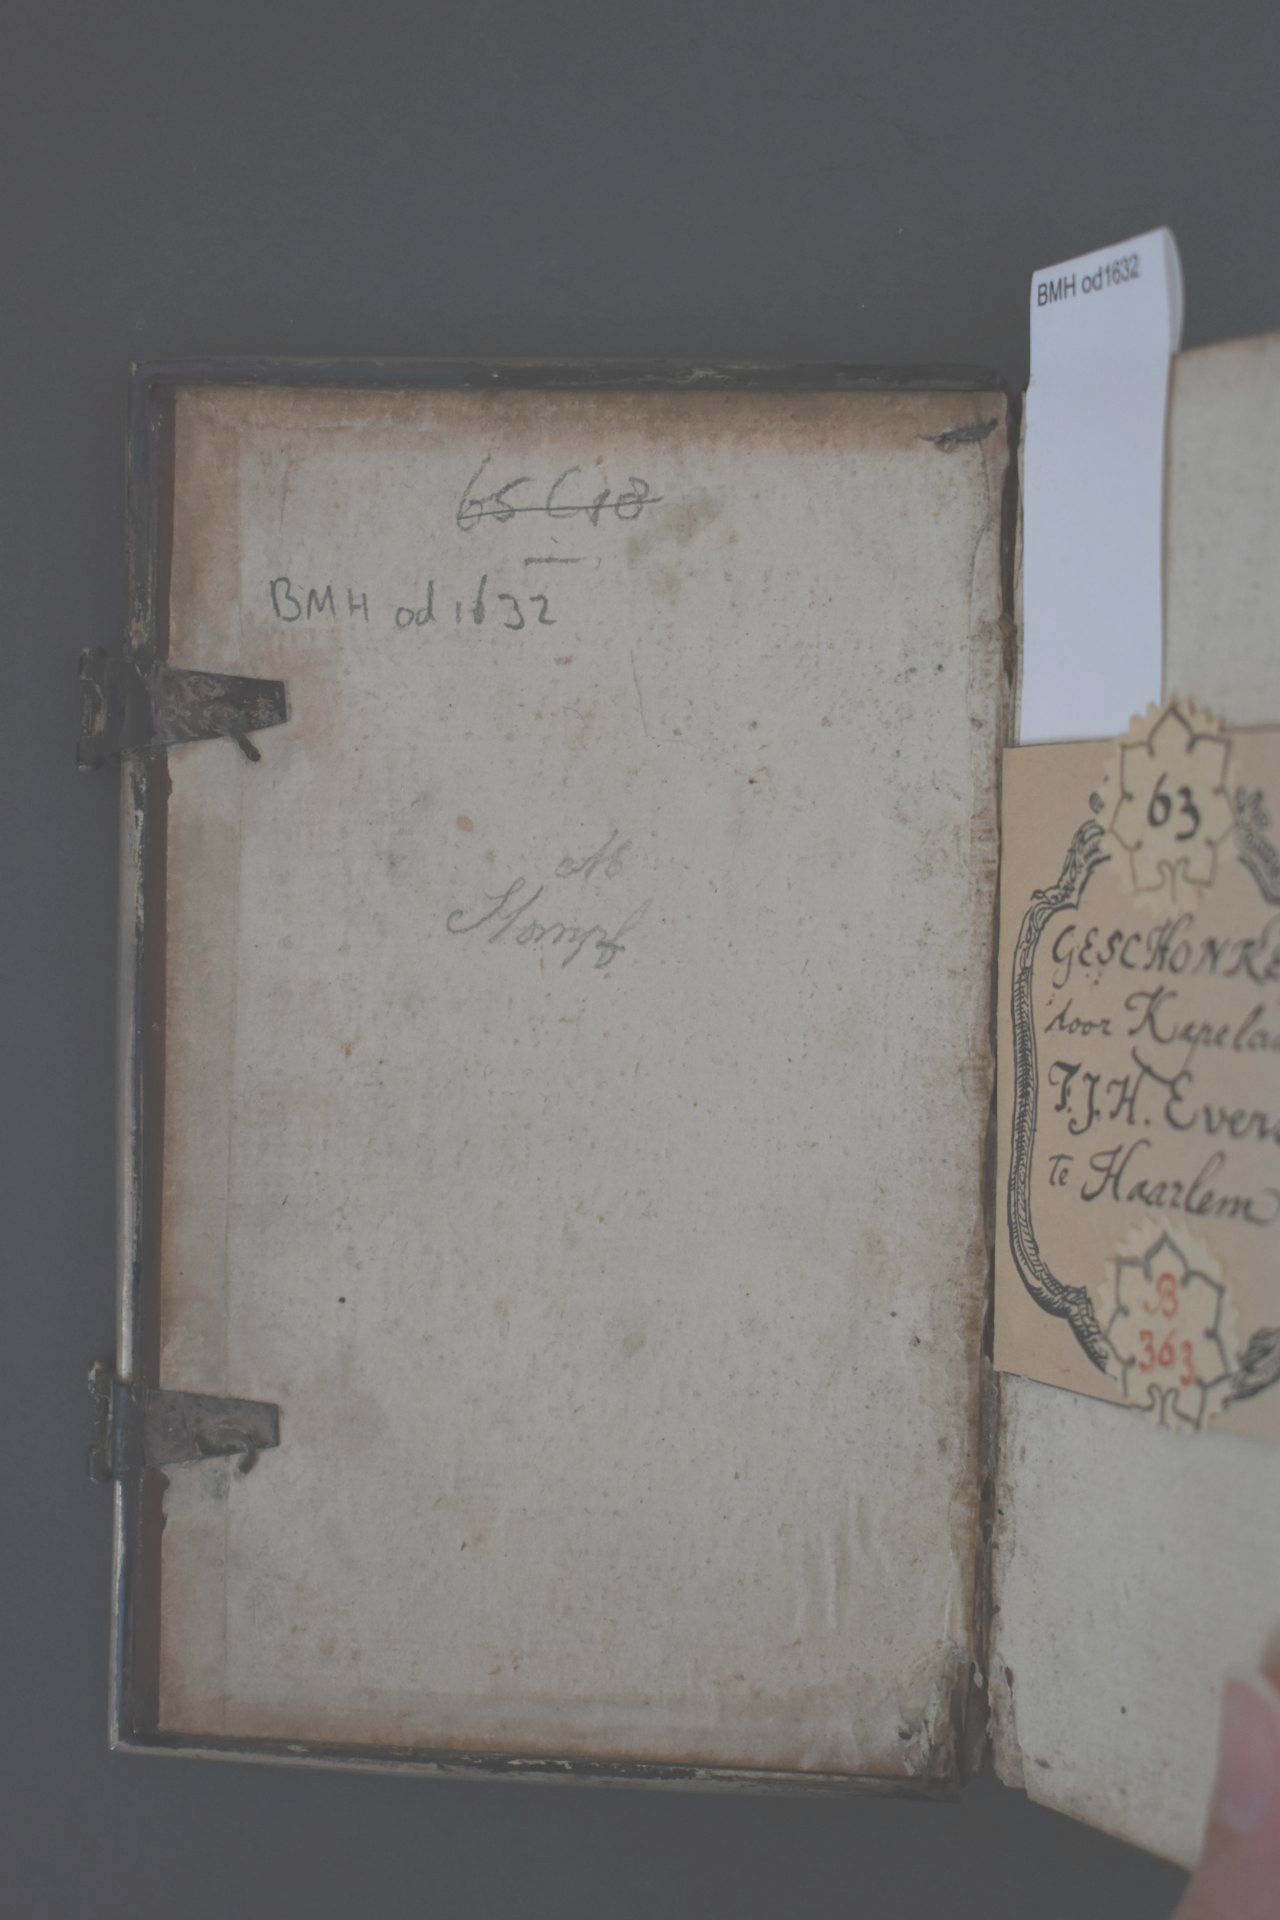 BMH od1632
65 C 18
BMH od 1632
63
GESCHONKE
door Kapela
F.J.H. Ever
te Haarlem
B
363